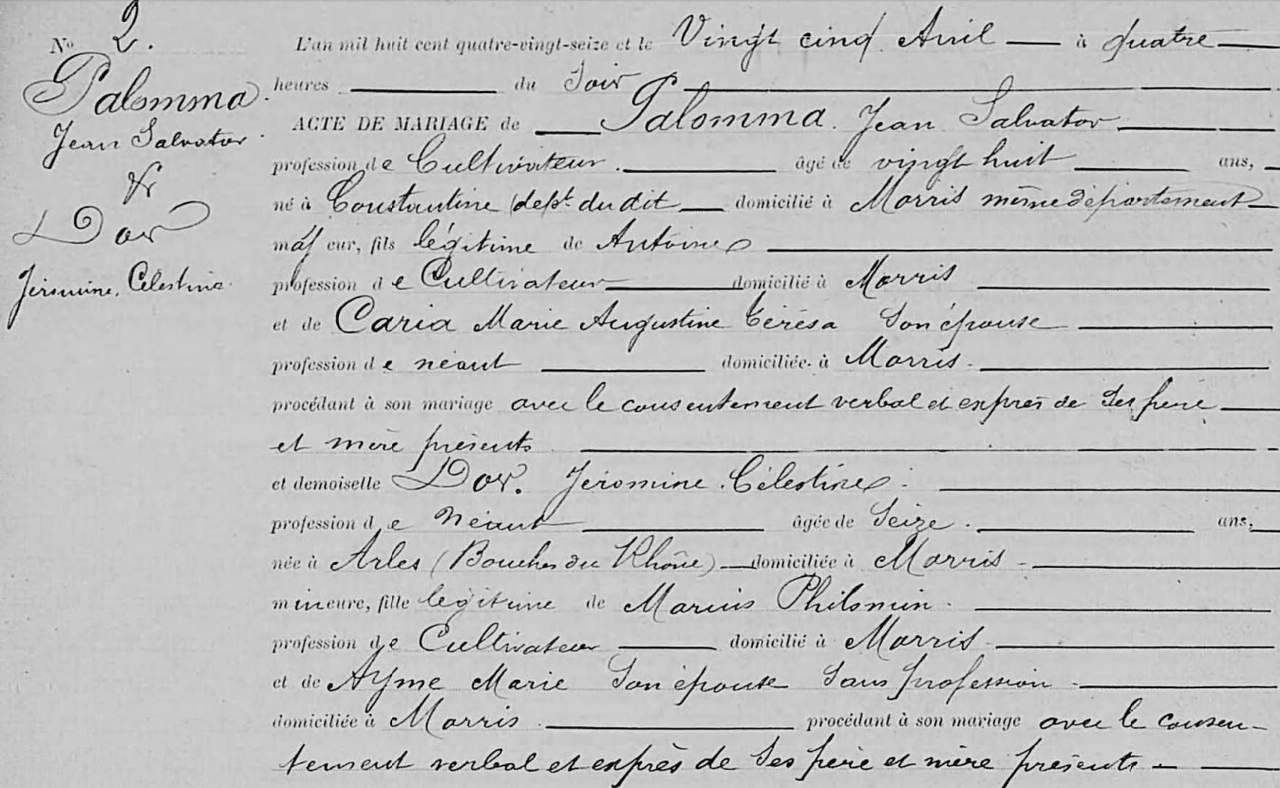 No 2.
Palomma.
Jean Salvator.
&
Dor
Jéromine, Célestine.
L'an mil huit cent quatre-vingt-seize et le Vingt cinq Avril à quatre
heures du Soir
ACTE DE MARIAGE de Palomma. Jean Salvator
profession de Cultivateur. âgé de vingt huit ans,
né à Constantine (dept. du dit domicilié à Morris même département
majeur, fils légitime de Antoine
profession de Cultivateur domicilié à Morris
et de Caria Marie Augustine Térésa Son épouse
profession de néant domiciliée à Morris.
procédant à son mariage avec le consentement verbal et exprès de Ses père
et mère présents
et demoiselle Dor. Jéromine. Célestine.
profession de Néant âgée de Seize. ans,
née à Arles (Bouches du Rhône) domiciliée à Morris
mineure, fille légitime de Marius Philomin.
profession de Cultivateur domicilié à Morris
et de Ayme Marie Son épouse Sans profession
domiciliée à Morris procédant à son mariage avec le consen-
tement verbal et exprès de Ses père et mère présents